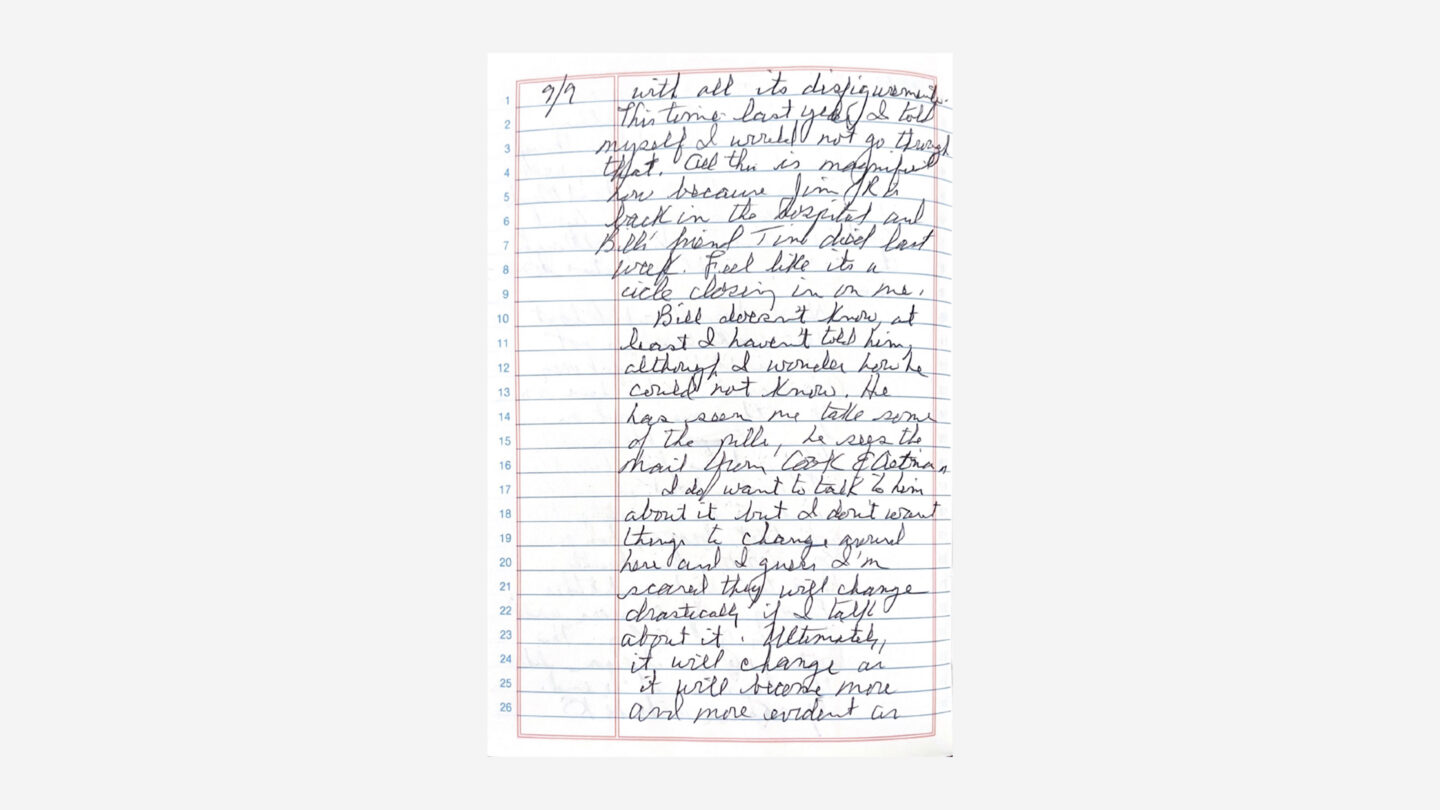 9/9
with all its disfigurements.
1
This time last year, I told
2
myself I would not go through
3
that. All this is magnified
4
now because Jim JR is
5
back in the hospital and
6
Bill's friend Tim died last
7
week. Feel like its a
8
cicle closing in on me.
9
Bill doesn't know, at
10
least I haven't told him,
11
although I wonder how he
12
could not know. He
13
has seen me take some
14
of the pills, he sees the
15
mail from Cook & Aetna.
16
I do want to talk to him
17
about it but I don't want
18
things to change around
19
here and I guess I'm
20
scared they will change
21
drastically if I talk
22
about it. Ultimately,
23
it will change as
24
it will become more
25
and more evident as
26